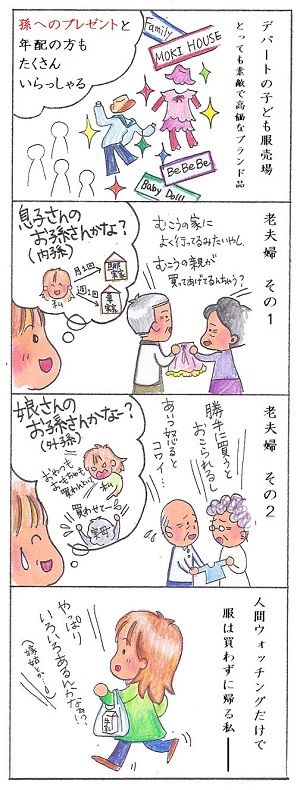 デパートの子ども服売場
とっても素敵で高価なブランド品
孫へのプレゼントと
年配の方も
たくさん
いらっしゃる
Family
MOKI HOUSE
BeBeBe
Baby Doll
老夫婦 その1
むこうの家に
よく行ってるみたいやし、
むこうの親が
買ってあげてるんちゃう?
息子さんの
お孫さんかな?
(内孫)
月1回
週1回
私
老夫婦 その2
勝手に買うと
おこられるし
あいつ怒ると
コワイ…
娘さんの
お孫さんかなー?
(外孫)
おやつと
おもちゃは
買わんといて
私
買わせてー
実母
人間ウォッチングだけで
服は買わずに帰る私――
やっぱり
いろいろあるんかなぁ!?
(嫁姑とか…)
牛乳